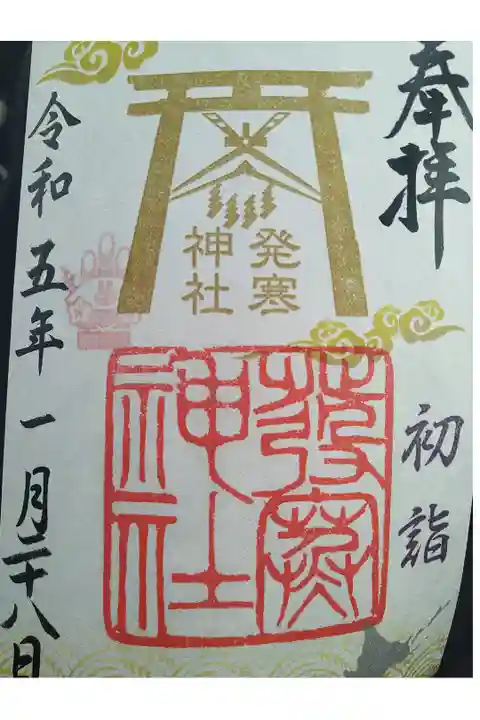 奉拝
発寒
神社
初詣
發寒
神社
令和五年一月二十八日